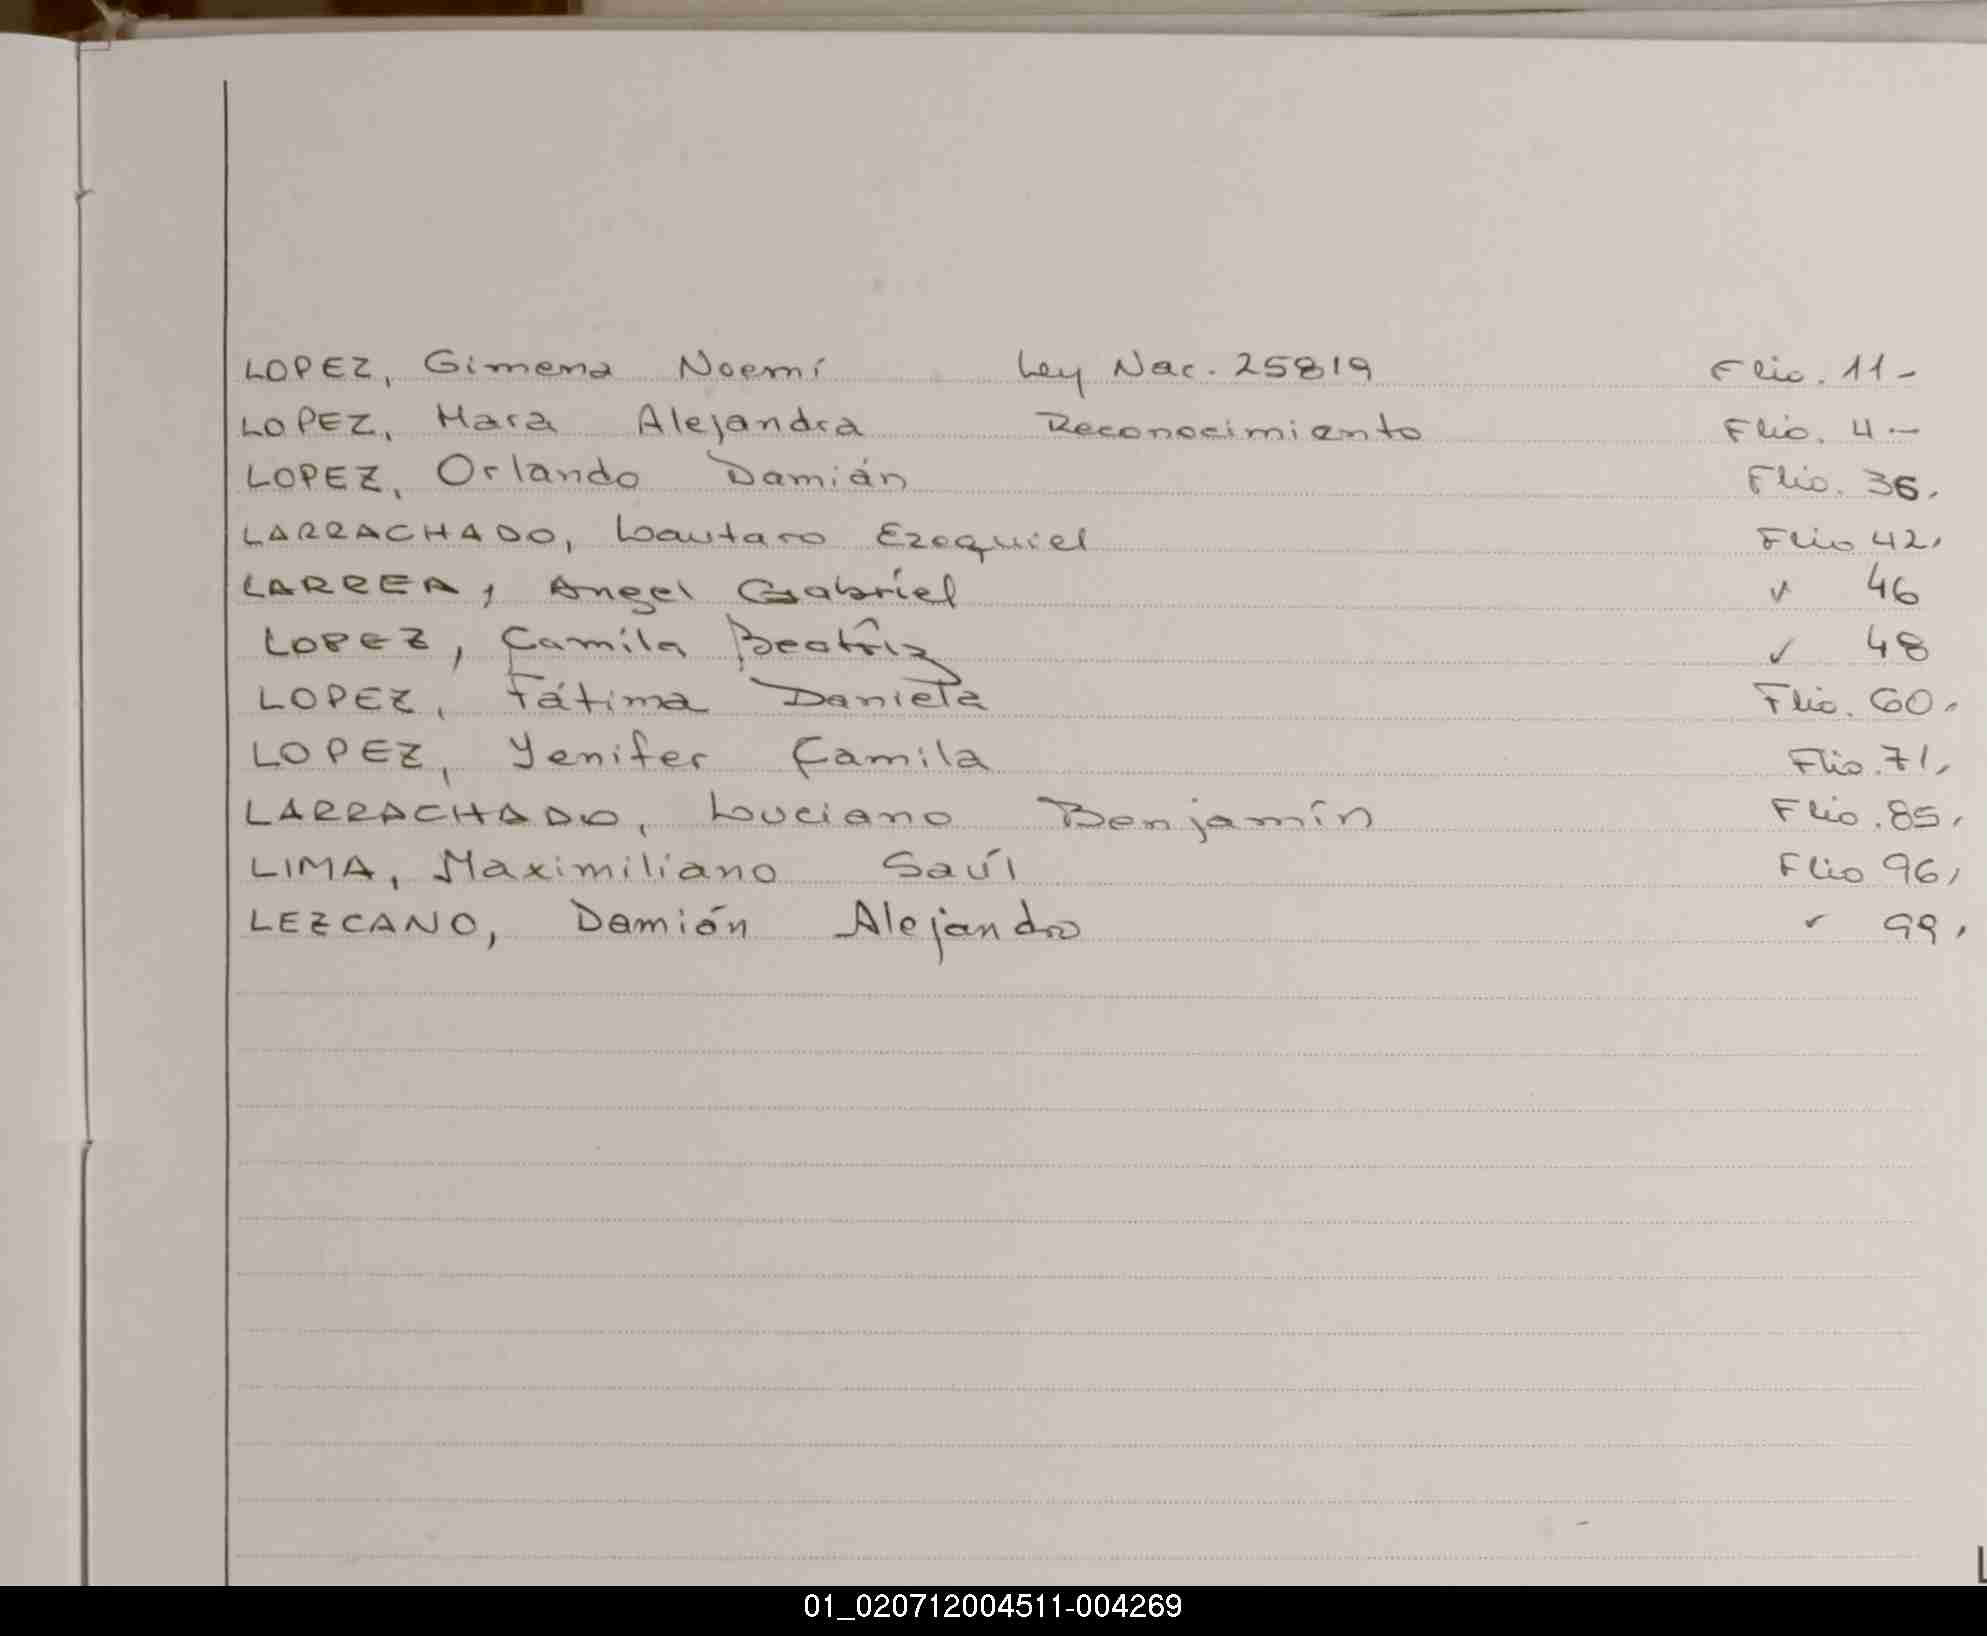 LOPEZ, Gimena Noemí Ley Nac. 25819 Flio. 11-
LOPEZ, Mara Alejandra Reconocimiento Flio. 4.-
LOPEZ, Orlando Damián Flio. 36,
LARRACHADO, Lautaro Ezequiel Flio 42,
LARREA, Angel Gabriel ✓ 46
LOPEZ, Camila Beatríz ✓ 48
LOPEZ, Fátima Daniela Flio. 60,
LOPEZ, Yenifer Camila Flio. 71,
LARRACHADO, Luciano Benjamín Flio. 85,
LIMA, Maximiliano Saúl Flio 96,
LEZCANO, Damián Alejandro ✓ 99,
L
01_020712004511-004269